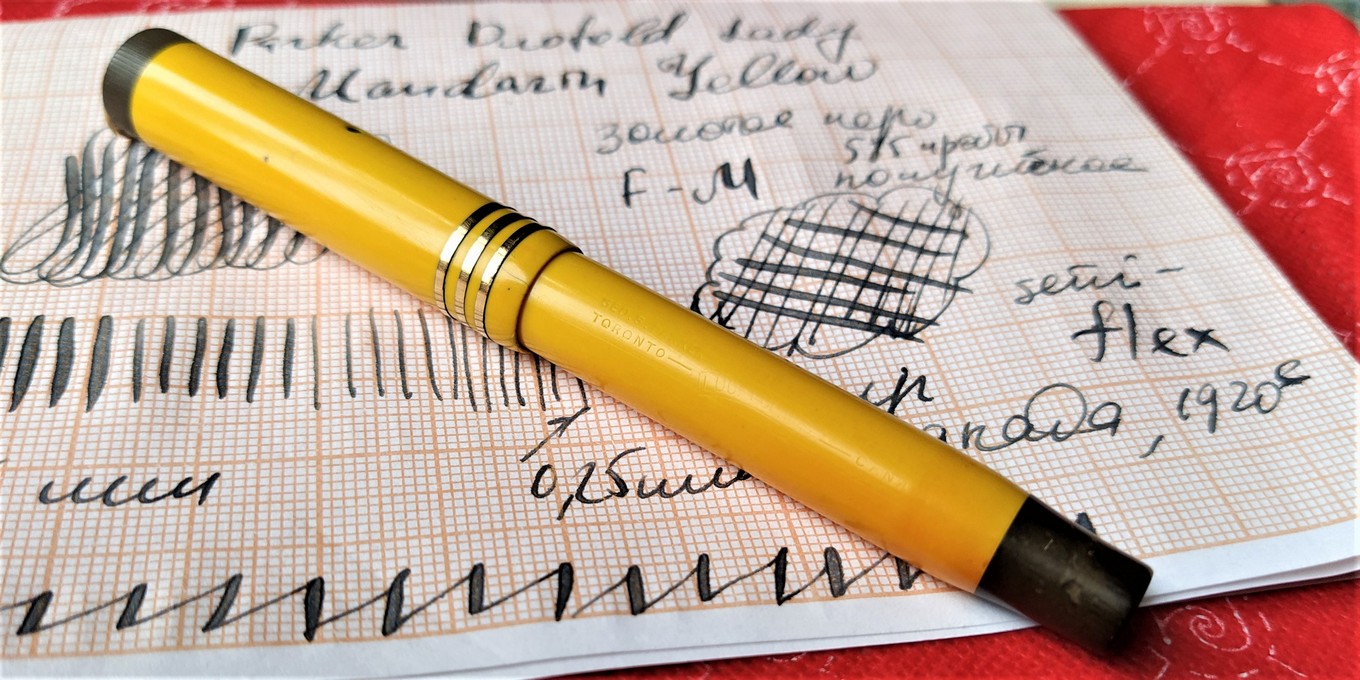 Parker Duofold Lady
Mandarin Yellow
золотое перо
585 пробы
F-M полугибкое
semi-
flex
1920е
мм
0,25мм
TORONTO